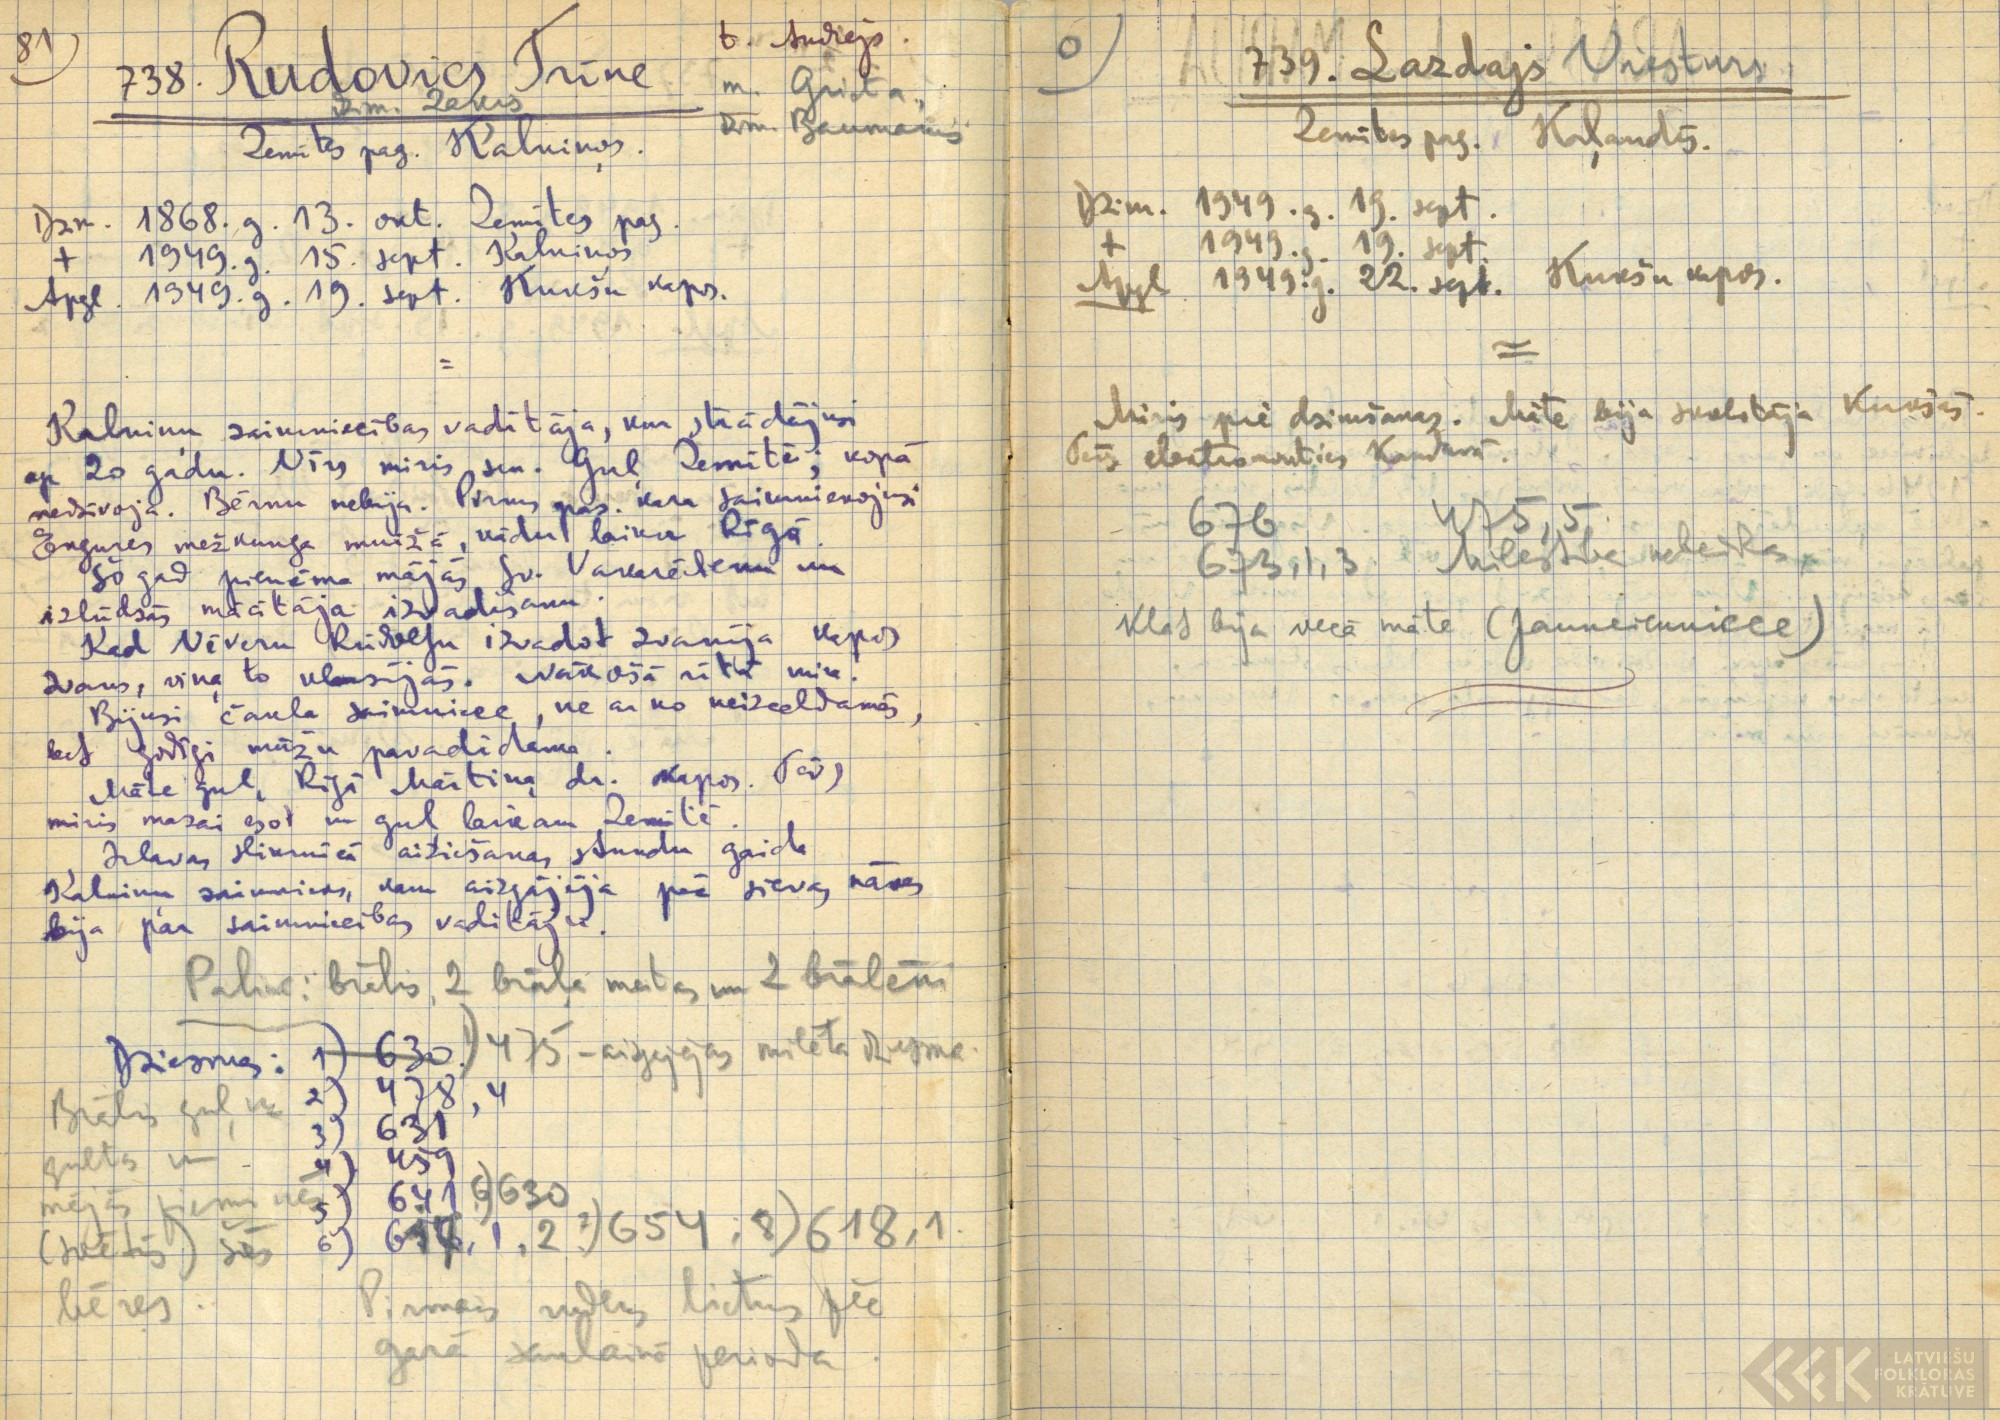 81)
738. Rudovics Trīne
dzim. Zakis
Zemītes pag. Kalniņos.
t. Andrejs.
m. Grieta,
dzim. Baumanis
Dzm. 1868. g. 13. okt. Zemītes pag.
+ 1949. g. 15. sept. Kalniņos
Apgl. 1949. g. 19. sept. Kukšu kapos.
=
Kalniņu saimniecības vadītāja, kur strādājusi
ap 20 gadu. Vīrs miris sen. Guļ Zemītē; kopā
nedzīvoja. Bērnu nebija. Pirms pas. kara saimniekojusi
Engures mežkunga muižā, kādu laiku Rīgā.
Šo gad pieņēma mājās Sv. Vakarēdienu un
izlūdzās mācītāja izvadīšanu.
Kad Vēveru Rūdolfu izvadot zvanīja kapos
zvans, viņa to klausījās. Nākošā rītā mira.
Bijusi čakla saimniece, ne ar ko neizceldamās,
bet godīgi mūžu pavadīdama.
Māte guļ Rīgā Mārtiņa dr. kapos. Tēvs
miris mazai esot un guļ laikam Zemītē.
Irlavas slimnīcā aiziešanas stundu gaida
Kalniņu saimnieks, kam aizgājēja pēc sievas nāves
bija par saimniecības vadītāju.
Paliek: brālis, 2 brāļa meitas un 2 brālēni
Dziesmas: 1) 630. 1) 475 – aizgājējas mīļēta dziesma.
2) 478, 4
3) 631
4) 459
5) 641 6) 630
6) 618, 1, 2 7) 654; 8) 618, 1.
Brālis guļ uz
gultas un
mājās
(svētīs) šīs
bēres.
Pirmais rudens lietus pēc
garā saulainā perioda.
0)
739. Lazdajs Viesturs
Zemītes pag. Kaļandās.
Dzim. 1949. g. 19. sept.
+ 1949. g. 19. sept.
Apgl 1949. g. 22. sept. Kukšu kapos.
=
Miris pie dzimšanas. Māte bija skolotāja Kukšās.
Tēvs elektromontieris Kandavā.
676 475, 5
673, 1, 3 Mīlestība nebeidzas
Klāt bija vecā māte (Jaunciemniece)
LATVIEŠU
FOLKLORAS
KRĀTUVE